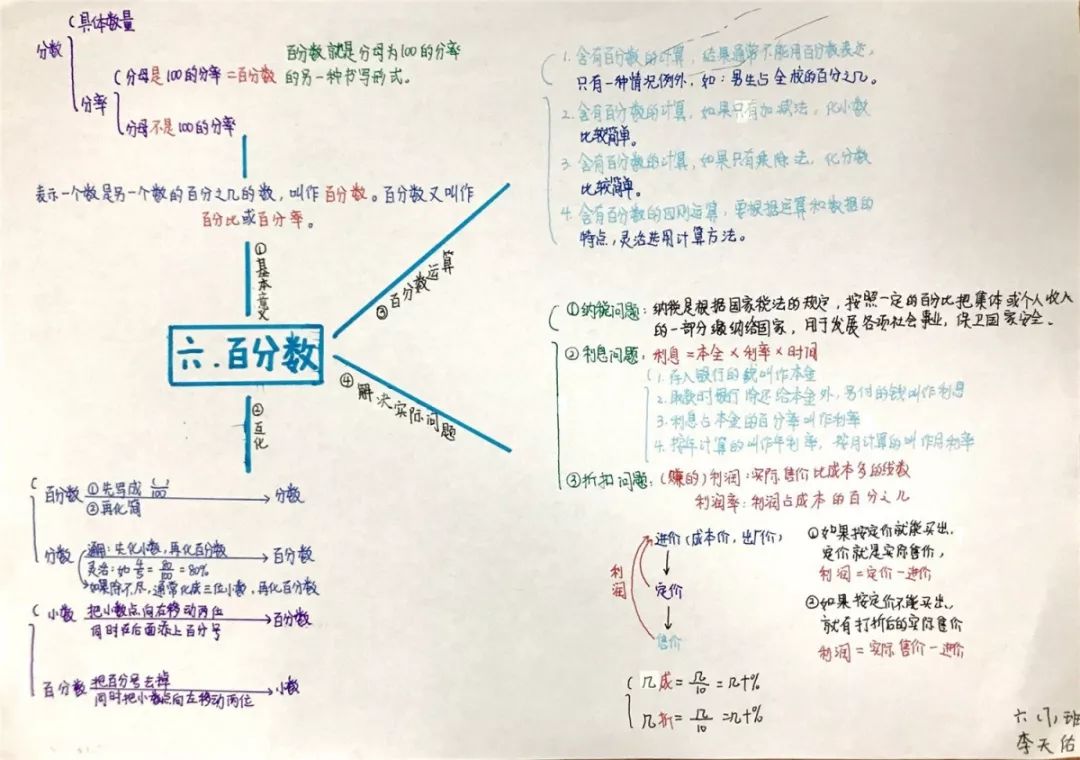 分数
具体数量
分率
分母是100的分率=百分数
分母不是100的分率
百分数就是分母为100的分率
的另一种书写形式。
表示一个数是另一个数的百分之几的数，叫作百分数。百分数又叫作
百分比或百分率。
①基本意义
六.百分数
②互化
百分数 ①先写成( )/100 分数
②再化简
分数 通用：先化小数，再化百分数 百分数
灵活：如4/5=80/100=80%
如果除不尽，通常化成三位小数，再化百分数
小数 把小数点向右移动两位 百分数
同时在后面添上百分号
百分数 把百分号去掉 小数
同时把小数点向左移动两位
③百分数运算
1.含有百分数的计算，结果通常不能用百分数表达，
只有一种情况例外，如：男生占全校的百分之几。
2.含有百分数的计算，如果只有加减法，化小数
比较简单。
3.含有百分数的计算，如果只有乘除法，化分数
比较简单。
4.含有百分数的四则运算，要根据运算和数据的
特点，灵活选用计算方法。
④解决实际问题
①纳税问题：纳税是根据国家税法的规定，按照一定的百分比把集体或个人收入
的一部分缴纳给国家，用于发展各项社会事业，保卫国家安全。
②利息问题：利息=本金×利率×时间
1.存入银行的钱叫作本金
2.取款时银行除还给本金外，另付的钱叫作利息
3.利息占本金的百分率叫作利率
4.按年计算的叫作年利率，按月计算的叫作月利率
③折扣问题：(赚的)利润：实际售价比成本多的钱数
利润率：利润占成本的百分之几
进价(成本价，出厂价)
利润
定价
售价
①如果按定价就能买出，
定价就是实际售价，
利润=定价-进价
②如果按定价不能买出，
就有打折后的实际售价
利润=实际售价-进价
几成=几/10=几十%
几折=几/10=几十%
六(7)班
李天佑